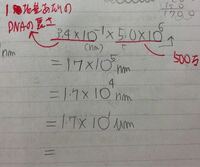 1塩基あたりの
DNAの長さ
3.4×10⁻¹×5.0×10⁶
(nm)
500万
= 1.7×10⁵ nm
= 1.7×10⁴ nm
= 1.7×10¹ μm
=